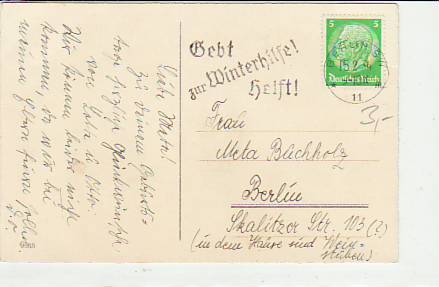 Liebe Meta!
Zu deinem Geburts-
tage herzliche Glückwünsche
von Lotte u. Otto.
Wir können leider nicht
kommen, da wir bei
meinen Eltern feiern
Gebt
zur Winterhilfe!
Helft!
5 5
Deutsches Reich
BERLIN SW
11
3,-
Frau
Meta Buchholz
Berlin
Skalitzer Str. 103 (?)
(in dem Hause sind Wein-
stuben)